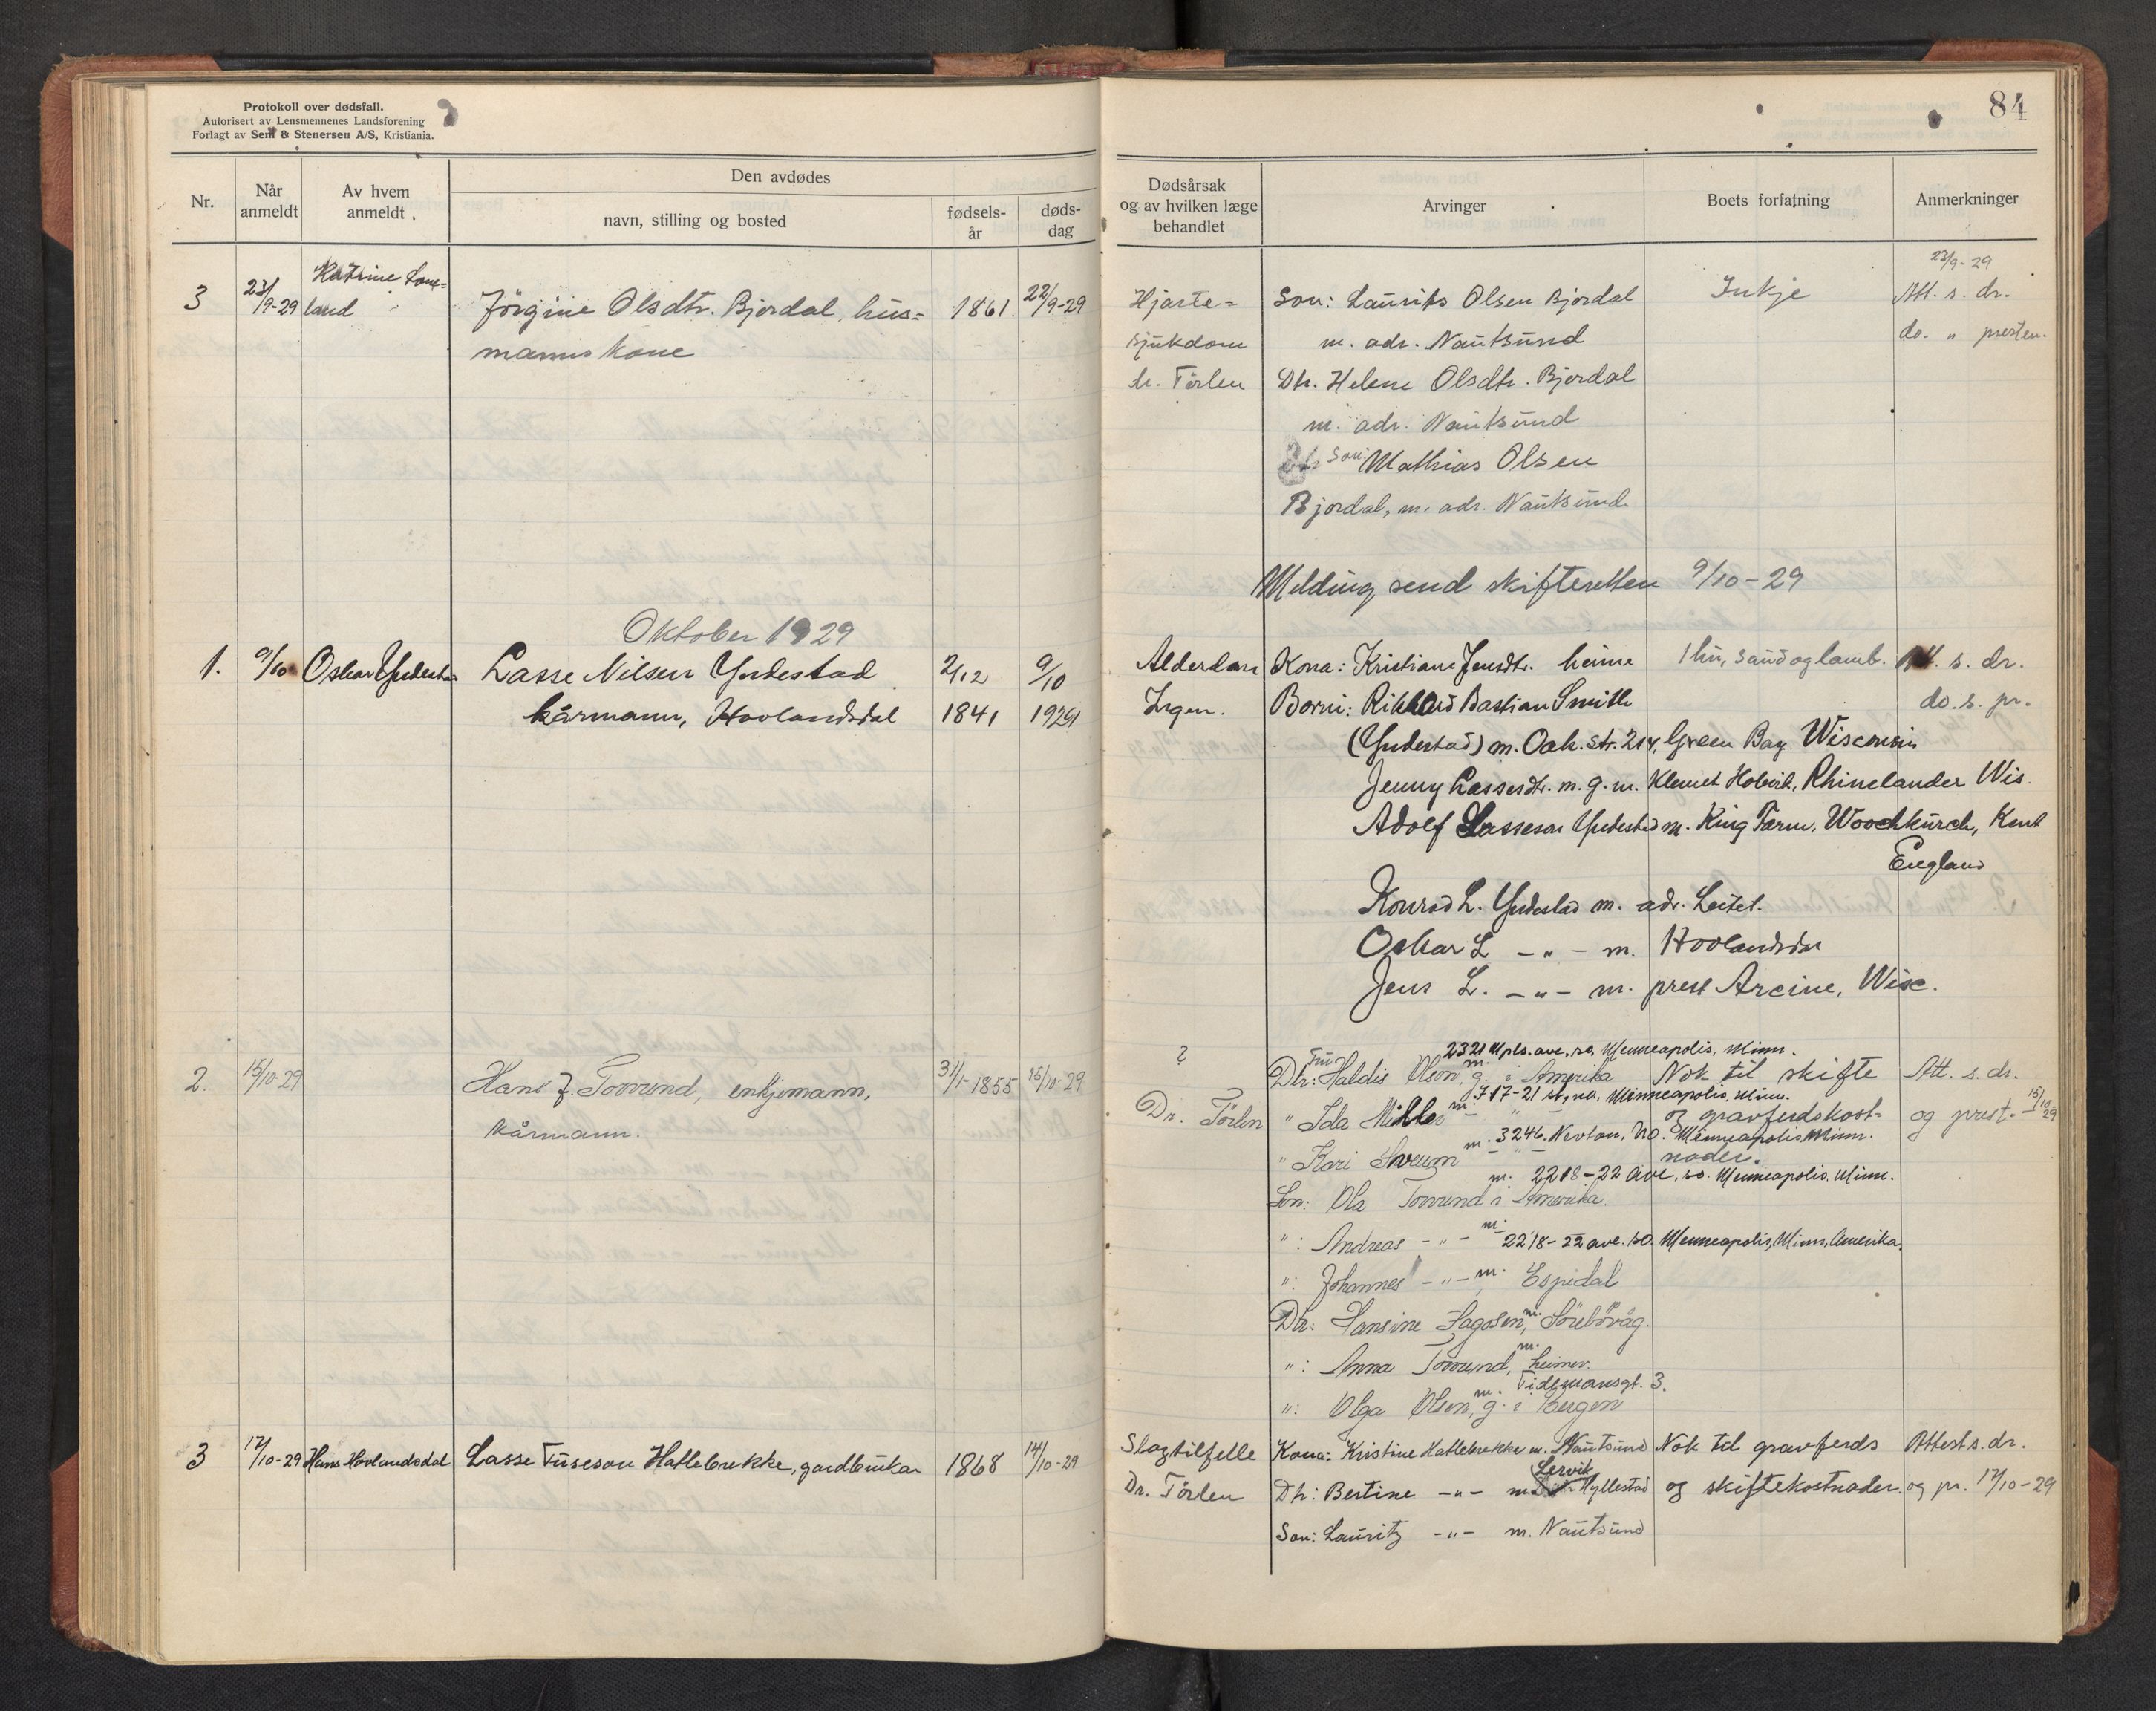 Protokoll over dødsfall.
Autorisert av Lensmennenes Landsforening
Forlagt av Sem & Stenersen A/S, Kristiania.
84
Nr.
Når anmeldt
Av hvem anmeldt
Den avdødes
navn, stilling og bosted
fødsels-år
døds-dag
Dødsårsak og av hvilken læge behandlet
Arvinger
Boets forfatning
Anmerkninger
3 23/9-29 Katrine
land
Jörgine Olsdtr. Bjordal, hus= 1861 22/9-29
manns kone
Hjarte=
sjukdom
dr. Törlen
Son: Laurits Olsen Bjordal
m. adr. Nautsund
Dtr. Helene Olsdtr. Bjordal
m. adr. Nautsund
Son: Mathias Olsen
Bjordal, m. adr. Nautsund.
Inkje
23/9-29
Att. s. dr.
do. " presten.
Melding send skifteretten 9/10-29
Oktober 1929
1. 9/10 Oskar Yndestad
Lasse Nilsen Yndestad 2/12 9/10
kårmann, Hovlandsdal 1841 1929
Alderdom
Ingen.
Kona: Kristiane Jensdtr. heime
Born: Rikhard Bastian Smith
(Yndestad) m. Oak. Str. 214, Green Bay Wisconsin
Jenny Lassesdtr. m. g. m. Klemet Hoberk, Rhinelander Wis.
Adolf Lasseson Yndestad m. King Farm, Woodchurch, Kent
England
Konrad L. Yndestad m. adr. Leitet.
Oskar L -"- m. Hovlandsdal
Jens L. -"- m. prest Arcine, Wisc.
1 ku, sau og lamb.
Att. s. dr.
do. s. pr.
2. 15/10-29
Hans J. Tovrund, enkjemann, 31/1-1855 15/10-29
kårmann.
?
Dr. Törlen
2321 Mpls. ave, so, Menneapolis, Minn.
Dtr: Fru Haldis Olsen, m. g. i Amerika
m. 717-21 st, no, Minneapolis, Minn.
" Ida
m. 3246. Newton, No. Menneapolis Minn.
" Kari
m. 2218-22 ave, so. Menneapolis, Minn.
Son: Ola Tovrund i Amerika.
": Andreas -"- m. 2218-22 ave. so. Menneapolis, Minn, Amerika.
": Johannes -"- m. Espedal
Dtr: Hansine Hagosen, m. Sörebövåg
": Anna Tovrund, m. heime.
m. Tidemansgt. 3.
": Olga Olsen, g. i Bergen
Nok til skifte
og gravferdskost=
nader.
Att. s. dr.
og prest. 15/10-29
3 17/10-29 Hans Hovlandsdal
Lasse Tuseson Hatlebrekke, gardbrukar 1868 14/10-29
Slagtilfelle
Dr. Törlen
Kona: Kristine Hatlebrekke m. Nautsund
Dtr: Bertine -"- m. Lervik Hyllestad
Son: Lauritz -"- m. Nautsund
Nok til gravferds
og skiftekostnader.
Attest s. dr.
og pr. 17/10-29